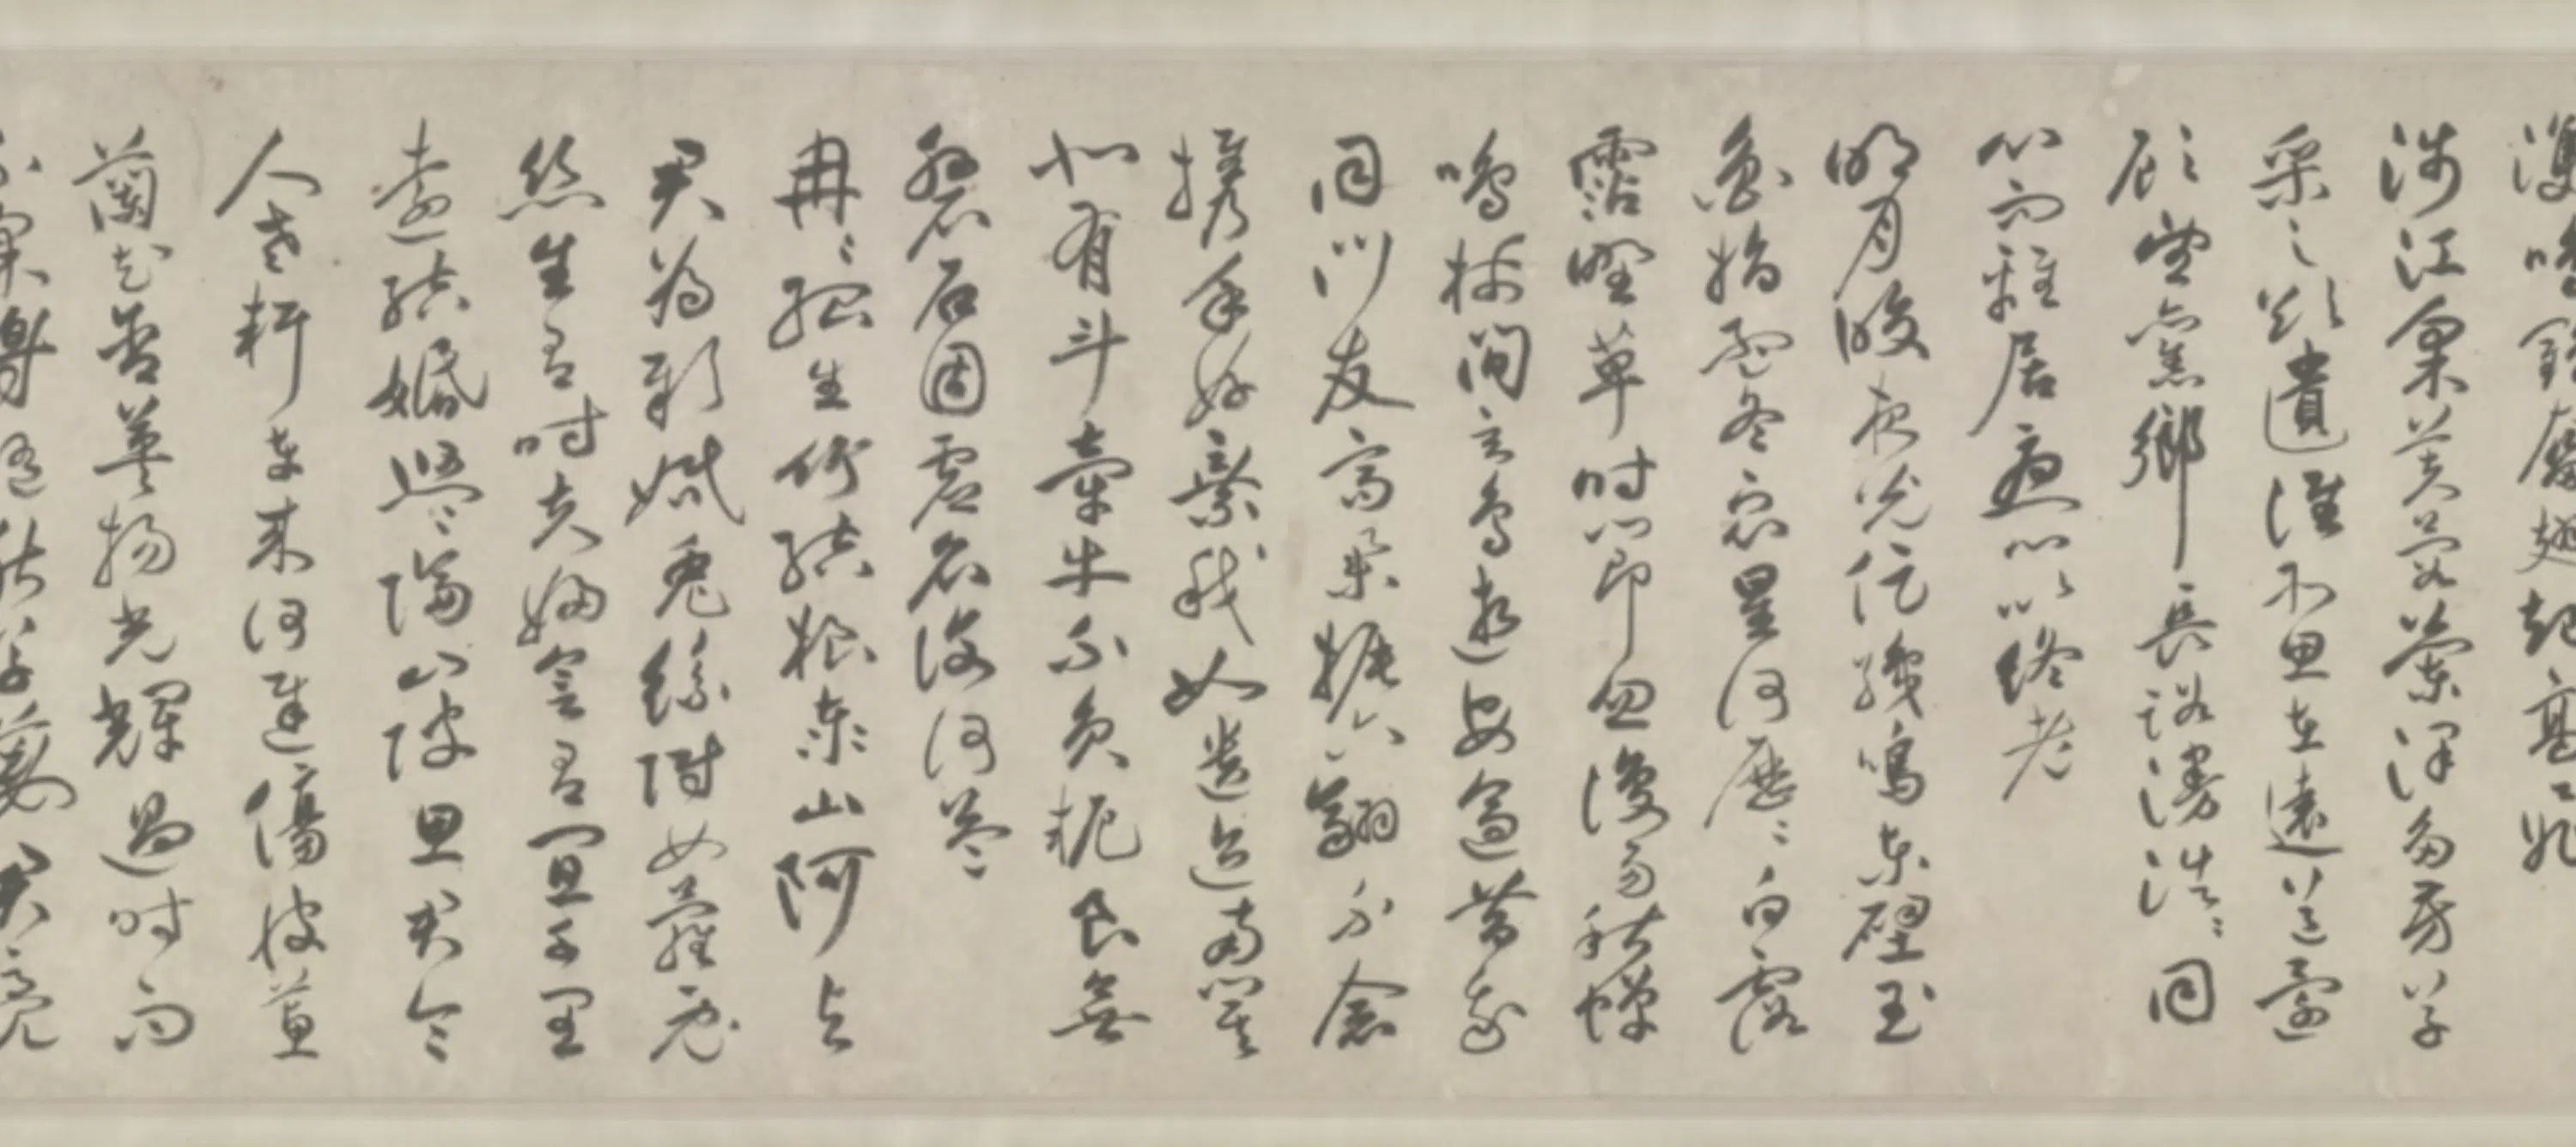 雙鳴鶴奮翅起高飛
涉江采芙蓉蘭澤多芳草
采之欲遺誰所思在遠道還
顧望舊鄉長路漫浩浩同
心而離居憂心以終老
明月皎夜光促織鳴東壁玉
衡指孟冬衆星何歷歷白露
霑野草時節忽復易秋蟬
鳴樹間玄鳥逝安適昔我
同門友高舉振六翮不念
攜手好棄我如遺跡南箕
北有斗牽牛不負軛良無
磐石固虛名復何益
冉冉孤生竹結根泰山阿與
君爲新婚兔絲附女蘿兔
絲生有時夫婦會有宜千里
遠結婚悠悠隔山陂思君令
人老軒車來何遲傷彼蕙
蘭花含英揚光輝過時而
不采將隨秋草萎君亮